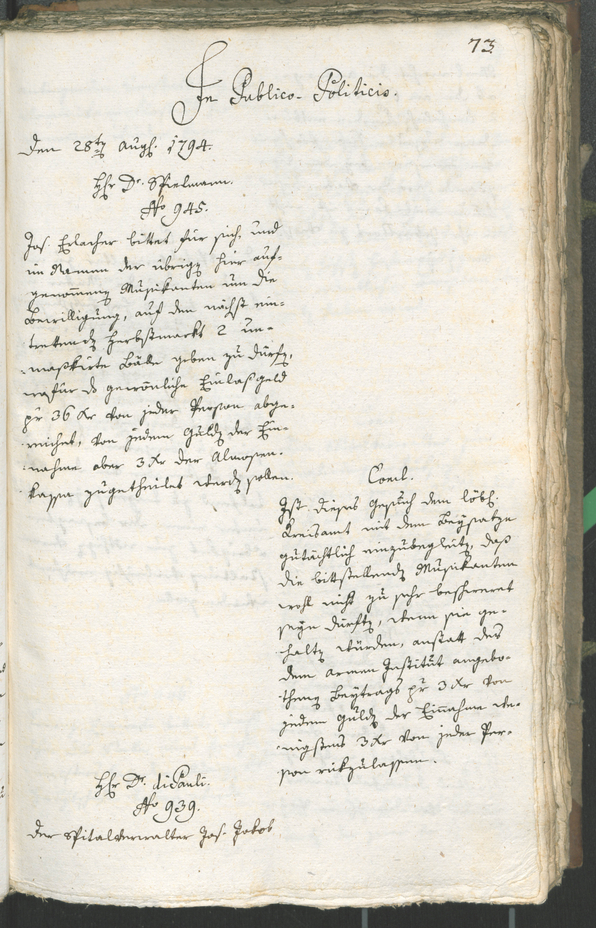 73
In Publico-Politicis.
Den 28ten Aug. 1794.
Hr Dr. Spielmann.
No 945.
Jos. Erlacher bittet für sich, und
im Namen der übrigen hier auf-
genom̄enen Musikanten um die
Bewilligung, auf den nächst ein-
tretenden Herbstmarkt 2 un-
maskirte Bälle geben zu dürfen,
wofür das gewönliche Einlaßgeld
pr 36 Kr von jeder Person abge-
reichet, von jedem Gulden der Ein-
nahme aber 3 Kr der Almosen-
kasse zugetheilet werden sollen.
Concl.
Ist dieses Gesuch dem löbl.
Kreisamt mit dem Beysatze
gutächtlich einzubegleiten, daß
die bittstellenden Musikanten
wohl nicht zu sehr beschweret
seyn dürften, wenn sie ge-
halten würden, anstatt des
dem armen Institut angebo-
thenen Beytrags pr 3 Kr von
jedem Gulden der Einnahme we-
nigstens 3 Kr von jeder Per-
son rükzulassen.
Hr Dr. diPauli.
No 939.
Der Spitalverwalter Jos. Jakob